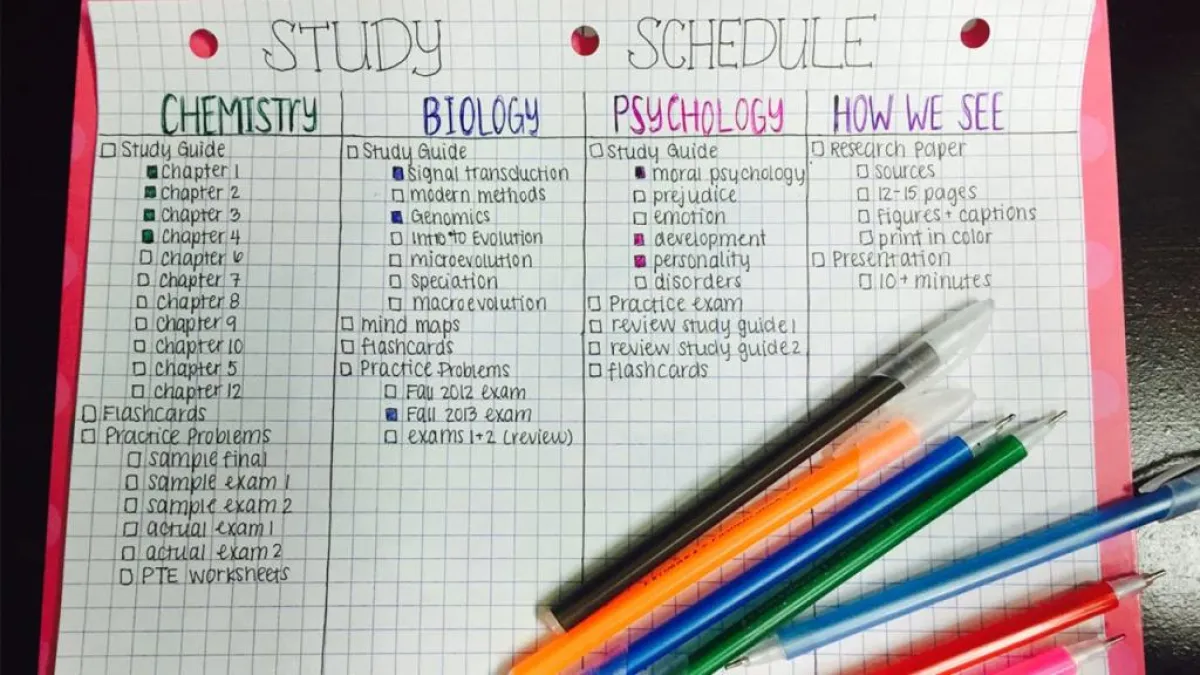 STUDY SCHEDULE
CHEMISTRY
Study Guide
Chapter 1
Chapter 2
Chapter 3
Chapter 4
Chapter 6
Chapter 7
Chapter 8
Chapter 9
Chapter 10
Chapter 5
Chapter 12
Flashcards
Practice Problems
sample final
sample exam 1
sample exam 2
actual exam 1
actual exam 2
PTE worksheets
BIOLOGY
Study Guide
signal transduction
modern methods
Genomics
Intro to Evolution
microevolution
speciation
macroevolution
mind maps
flashcards
Practice Problems
Fall 2012 exam
Fall 2013 exam
exams 1+2 (review)
PSYCHOLOGY
Study Guide
moral psychology
prejudice
emotion
development
personality
disorders
Practice exam
review study guide 1
review study guide 2
flashcards
HOW WE SEE
Research Paper
sources
12-15 pages
figures + captions
print in color
Presentation
10+ minutes